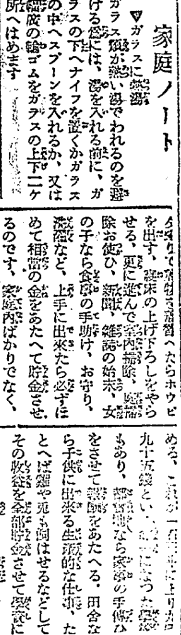 家庭ノート
▼ガラスに熱湯
ガラス類が熱い湯でわれるのを避
ける為には、湯を入れる前に、ガ
ラスの下へナイフを置くかガラス
の中へスプーンを入れるか、又は
の輪ゴムをガラスの上下二ケ
所へはめます
たらホウビ
を出す、寝床の上げ下ろしをやら
せる、更に進んで室内掃除、
除お使ひ、新聞、雑誌の始末、女
の子なら食事の手助け、お守り、
洗濯など、上手に出来たら必ずほ
めて相当の金をあたへて貯金させ
るのです、家庭内ばかりでなく、
める、これが一
九十五銭といになつた
もあり、なら家事の手傳ひ
をさせて報酬をあたへる。田舎な
ら子供に出来る生産的な仕事、た
とへば鶏や兎も飼はせるなどして
その収益を全部貯金させて